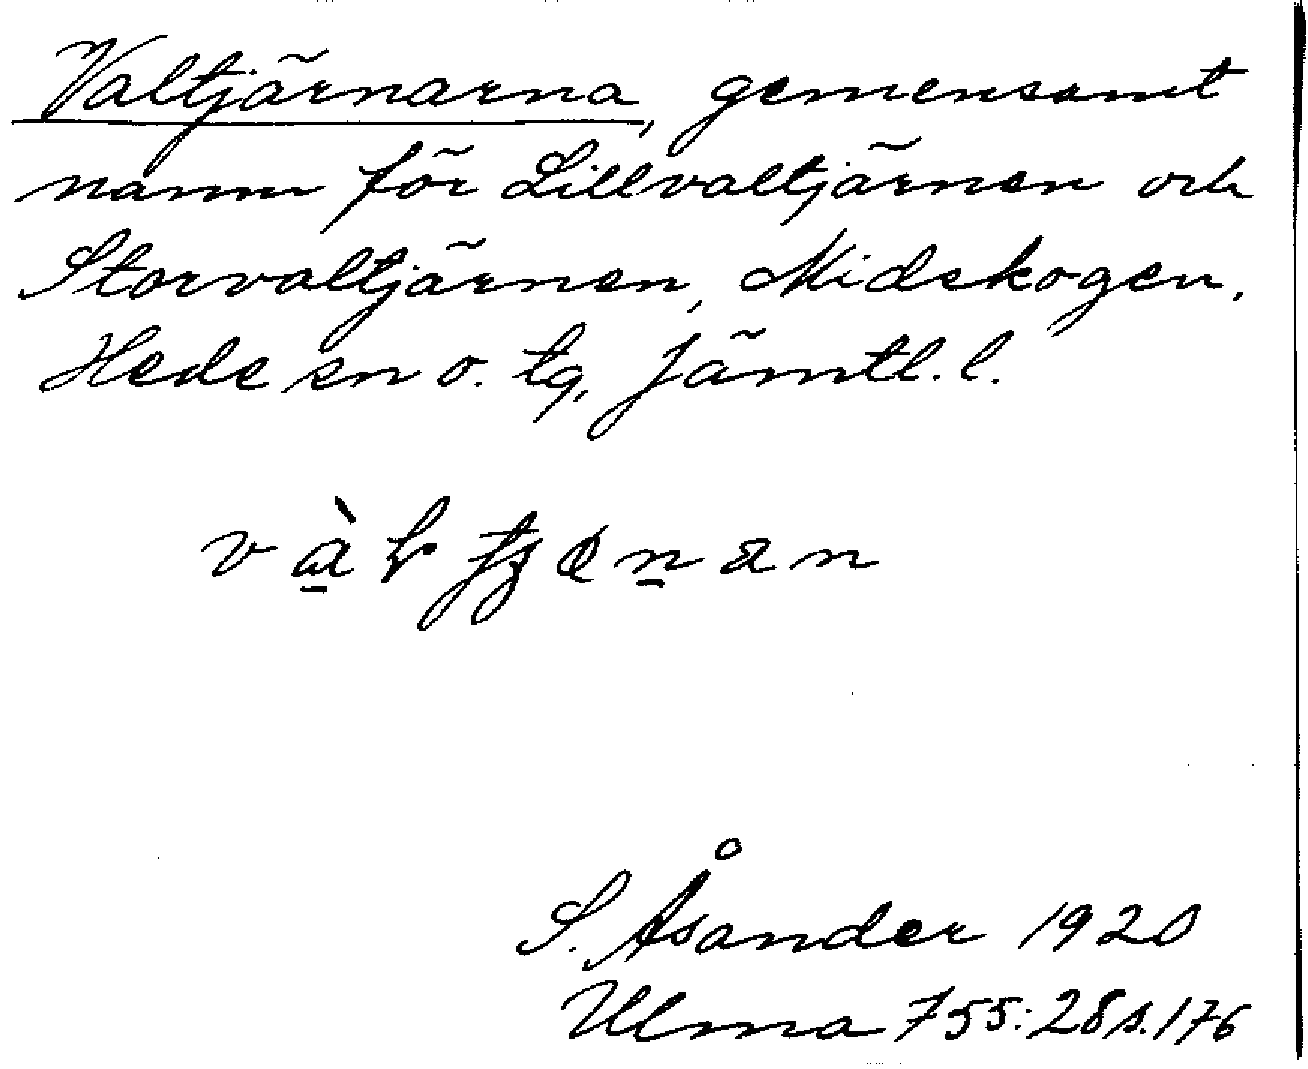 Valtjärnarna, gemensamt
namn för Lillvaltjärnen och
Storvaltjärnen, Midskogen.
Hede sn o. tg, Jämtl. l.
S. Åsander 1920
Ulma 755:28 s.176